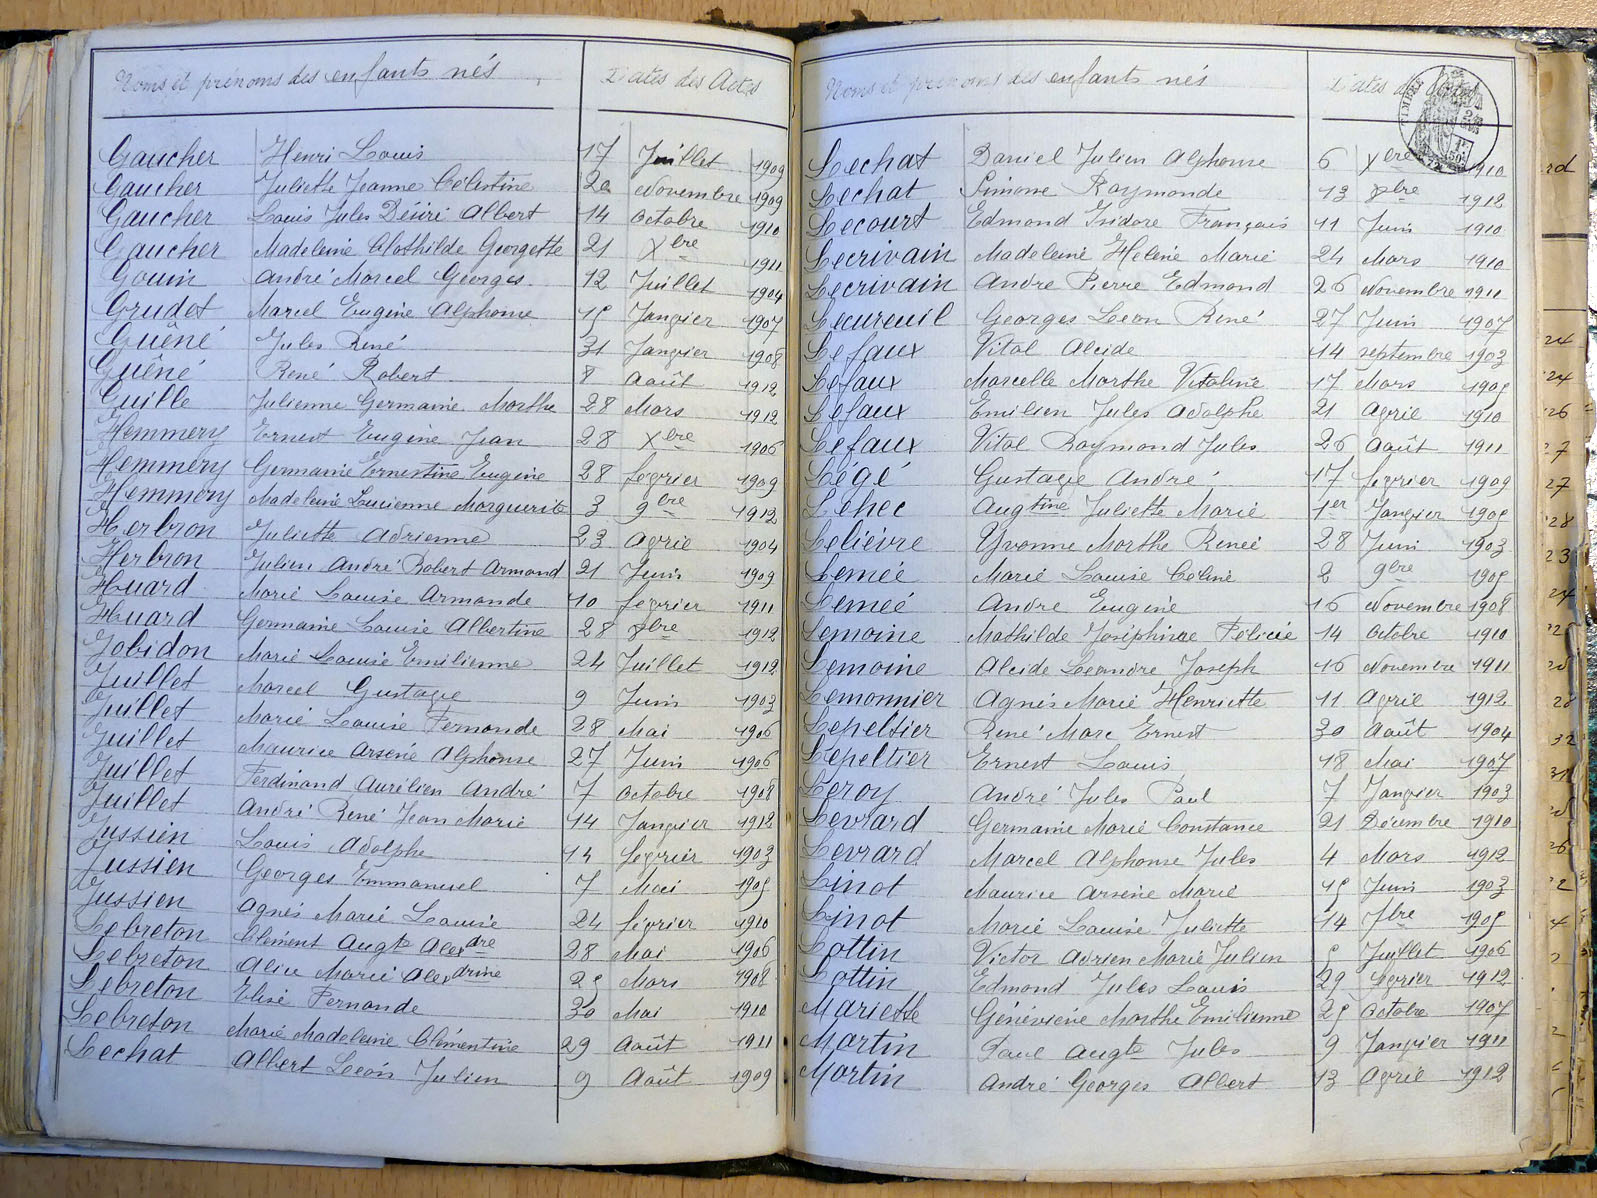 Noms et prénoms des enfants nés Dates des Actes
Gaucher Henri Louis 17 Juillet 1909
Gaucher Juliette Jeanne Célestine 20 Novembre 1909
Gaucher Louis Jules Désiré Albert 14 Octobre 1910
Gaucher Madeleine Clothilde Georgette 21 Xbre 1911
Gouin André Marcel Georges 12 Juillet 1904
Grudet Marcel Eugène Alphonse 15 Janvier 1907
Guêné Jules René 31 Janvier 1908
Guêné René Robert 8 Août 1912
Guille Julienne Germaine Marthe 28 Mars 1912
Hemmery Ernest Eugène Jean 28 Xbre 1906
Hemmery Germaine Ernestine Eugénie 28 février 1909
Hemmery Madeleine Lucienne Marguerite 3 9bre 1912
Herbron Juliette Adrienne 23 Avril 1904
Herbron Julien André Robert Armand 21 Juin 1909
Huard Marie Louise Armande 10 février 1911
Huard Germaine Louise Albertine 28 8bre 1912
Jobidon Marie Louise Emilienne 24 Juillet 1912
Juillet Marcel Gustave 9 Juin 1903
Juillet Marie Louise Fernande 28 Mai 1906
Juillet Maurice Arsène Alphonse 27 Juin 1906
Juillet Ferdinand Aurélien André 7 Octobre 1908
Juillet André René Jean Marie 14 Janvier 1912
Jussien Louis Adolphe 14 février 1903
Jussien Georges Emmanuel 7 Mai 1905
Jussien Agnès Marie Louise 24 février 1910
Lebreton Clément Augte Alexdre 28 Mai 1906
Lebreton Alice Marie Alexdrine 25 Mars 1908
Lebreton Elise Fernande 30 Mai 1910
Lebreton Marie Madeleine Clémentine 29 Août 1911
Lechat Albert Léon Julien 9 Août 1909
Noms et prénoms des enfants nés Dates des Actes
TIMBRE
Lechat Daniel Julien Alphonse 6 Xbre 1910
Lechat Simone Raymonde 13 8bre 1912
Lecourt Edmond Isidore François 11 Juin 1910
Lecrivain Madeleine Hélène Marie 24 Mars 1910
Lecrivain André Pierre Edmond 26 Novembre 1911
Lecureuil Georges Léon René 27 Juin 1907
Lefaux Vital Alcide 14 septembre 1903
Lefaux Marcelle Marthe Vitaline 17 Mars 1905
Lefaux Emilien Jules Adolphe 21 Avril 1910
Lefaux Vital Raymond Jules 26 Août 1911
Légé Gustave André 17 février 1909
Lehec Augtine Juliette Marie 1er Janvier 1905
Lelièvre Yvonne Marthe Renée 28 Juin 1903
Lemée Marie Louise Céline 2 9bre 1905
Lemée André Eugène 16 Novembre 1908
Lemoine Mathilde Joséphine Félicie 14 Octobre 1910
Lemoine Alcide Léandre Joseph 16 Novembre 1911
Lemonnier Agnès Marie Henriette 11 Avril 1912
Lepeltier René Marc Ernest 30 Août 1904
Lepeltier Ernest Louis 18 Mai 1907
Leroy André Jules Paul 7 Janvier 1903
Levrard Germaine Marie Constance 21 Décembre 1910
Levrard Marcel Alphonse Jules 4 Mars 1912
Linot Maurice Arsène Marie 15 Juin 1903
Linot Marie Louise Juliette 14 7bre 1905
Lottin Victor Adrien Marie Julien 5 Juillet 1906
Lottin Edmond Jules Louis 29 février 1912
Mariette Géneviève Marthe Emilienne 25 Octobre 1907
Martin Paul Augte Jules 9 Janvier 1911
Martin André Georges Albert 13 Avril 1912